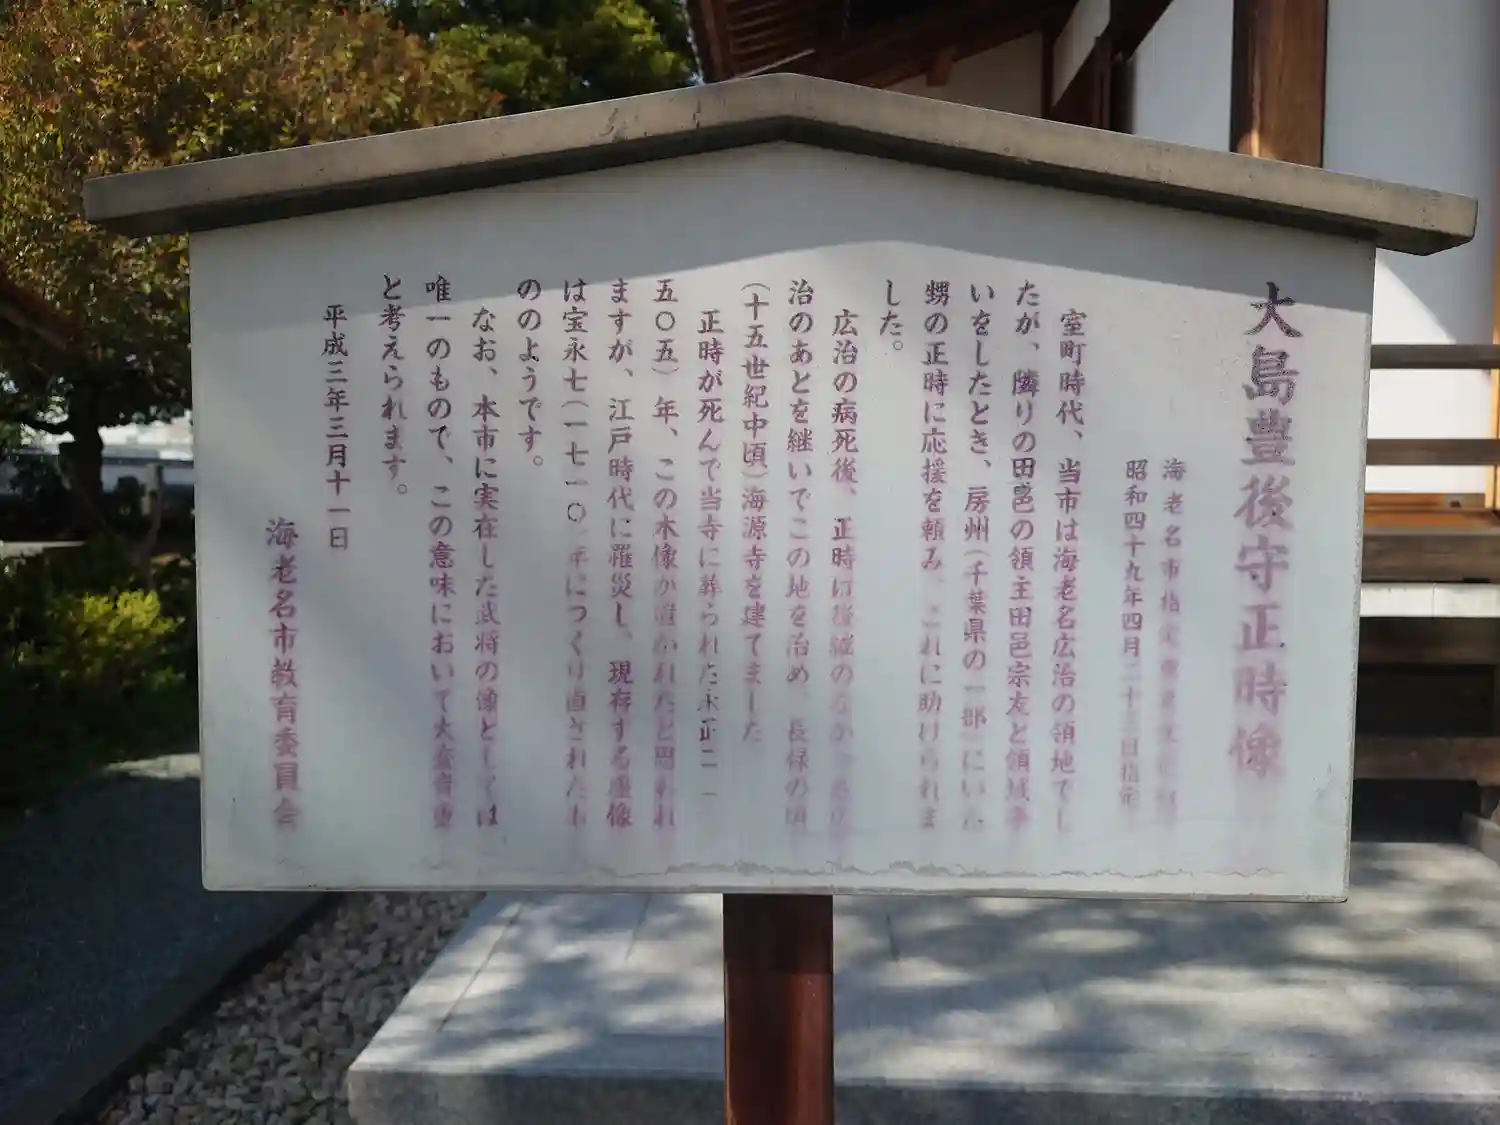 大島豊後守正時像
海老名市指定重要文化財
昭和四十九年四月二十三日指定
室町時代、当市は海老名広治の領地でし
たが、隣りの田邑の領主田邑宗友と領域争
いをしたとき、房州(千葉県の一部)にいた
甥の正時に応援を頼み、これに助けられま
した。
広治の病死後、正時は後継のなかった広
治のあとを継いでこの地を治め、長禄の頃
(十五世紀中頃)海源寺を建てました
正時が死んで当寺に葬られた永正二(一
五〇五)年、この木像が置かれたと思われ
ますが、江戸時代に罹災し、現存する座像
は宝永七(一七一〇)年につくり直されたも
ののようです。
なお、本市に実在した武将の像としては
唯一のもので、この意味において大変貴重
と考えられます。
平成三年三月十一日
海老名市教育委員会